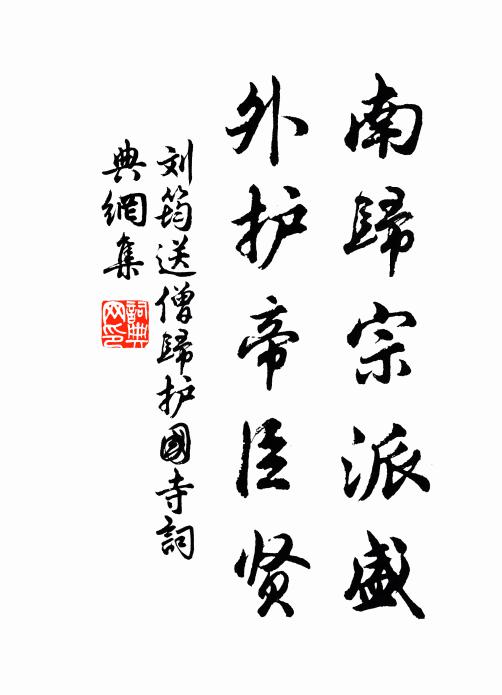 南歸宗派盛
外护帝臣贤
刘筠送僧歸护國寺詞
典網集
詞典网印